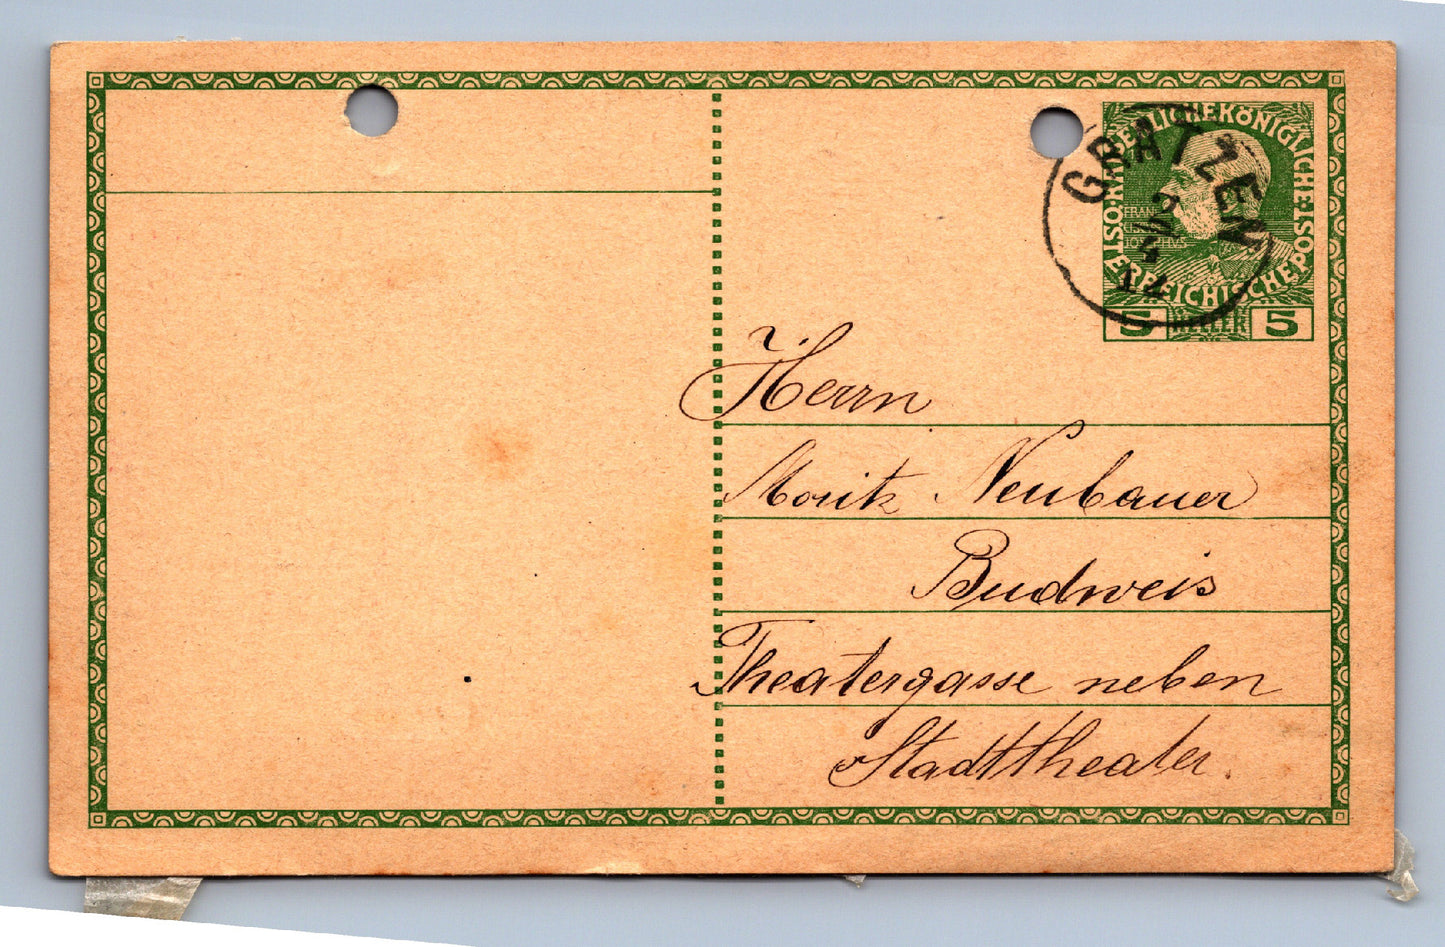 KAISERLICHE KÖNIGLICHE ÖSTERREICHISCHE POST
FRANC
IOSEPHVS
5 HELLER 5
GRATZEN
Herrn
Moritz Neubauer
Budweis
Theatergasse neben
Stadttheater.